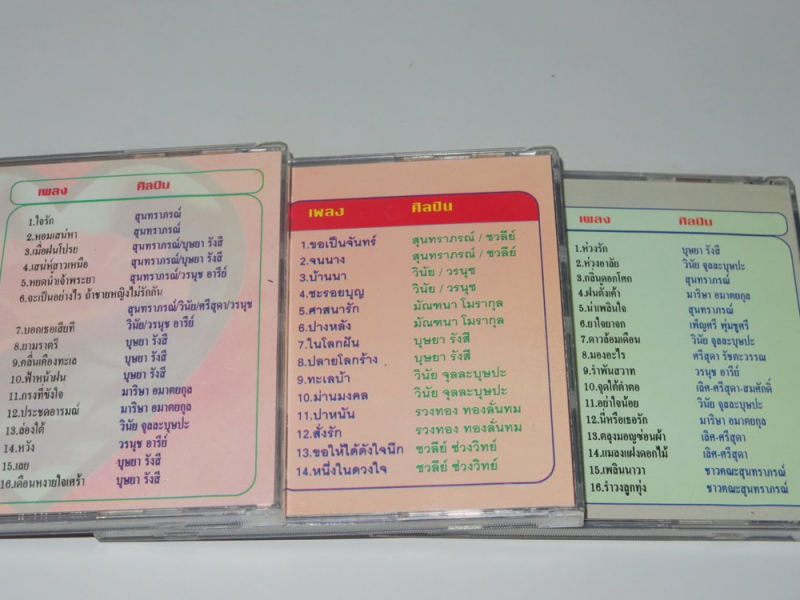 เพลง ศิลปิน
1.ใจรัก สุนทราภรณ์
2.หอมเสน่หา สุนทราภรณ์
3.เมื่อฝนโปรย สุนทราภรณ์/บุษยา รังสี
4.เสน่ห์สาวเหนือ สุนทราภรณ์/บุษยา รังสี
5.หยดน้ำเจ้าพระยา สุนทราภรณ์/วรนุช อารีย์
6.จะเป็นอย่างไร ถ้าชายหญิงไม่รักกัน
สุนทราภรณ์/วินัย/ศรีสุดา/วรนุช
7.บอกเธอเสียที วินัย/วรนุช อารีย์
8.ยามราตรี บุษยา รังสี
9.คลื่นเคืองทะเล บุษยา รังสี
10.ฟ้าหน้าฝน บุษยา รังสี
11.กรงที่ขังใจ มาริษา อมาตยกุล
12.ประชดอารมณ์ มาริษา อมาตยกุล
13.ล่องใต้ วินัย จุลละบุษปะ
14.หวัง วรนุช อารีย์
15.เลย บุษยา รังสี
16.เดือนหงายใจเศร้า บุษยา รังสี
เพลง ศิลปิน
1.ขอเป็นจันทร์ สุนทราภรณ์ / ชวลีย์
2.จนนาง สุนทราภรณ์ / ชวลีย์
3.บ้านนา วินัย / วรนุช
4.ชะรอยบุญ วินัย / วรนุช
5.ศาสนารัก มัณฑนา โมรากุล
6.ปางหลัง มัณฑนา โมรากุล
7.ในโลกฝัน บุษยา รังสี
8.ปลายโลกร้าง บุษยา รังสี
9.ทะเลบ้า วินัย จุลละบุษปะ
10.ม่านมงคล วินัย จุลละบุษปะ
11.ปาหนัน รวงทอง ทองลั่นทม
12.สั่งรัก รวงทอง ทองลั่นทม
13.ขอให้ได้ดังใจนึก ชวลีย์ ช่วงวิทย์
14.หนึ่งในดวงใจ ชวลีย์ ช่วงวิทย์
เพลง ศิลปิน
1.ห่วงรัก บุษยา รังสี
2.ห่วงอาลัย วินัย จุลละบุษปะ
3.กลิ่นดอกโศก สุนทราภรณ์
4.ฝนตั้งเค้า มาริษา อมาตยกุล
5.นำเพลินใจ สุนทราภรณ์
6.ยาใจยาจก เพ็ญศรี พุ่มชูศรี
7.ดาวล้อมเดือน วินัย จุลละบุษปะ
8.มองอะไร ศรีสุดา รัชตะวรรณ
9.รำพันสวาท วรนุช อารีย์
10.จุดใต้ตำตอ เลิศ-ศรีสุดา-สมศักดิ์
11.อย่าใจน้อย วินัย จุลละบุษปะ
12.นี่หรือเธอรัก มาริษา อมาตยกุล
13.คลุงมอญซ่อนผ้า เลิศ-ศรีสุดา
14.แมลงแฝงดอกไม้ เลิศ-ศรีสุดา
15.เพลินนาวา ชาวคณะสุนทราภรณ์
16.รำวงลูกทุ่ง ชาวคณะสุนทราภรณ์